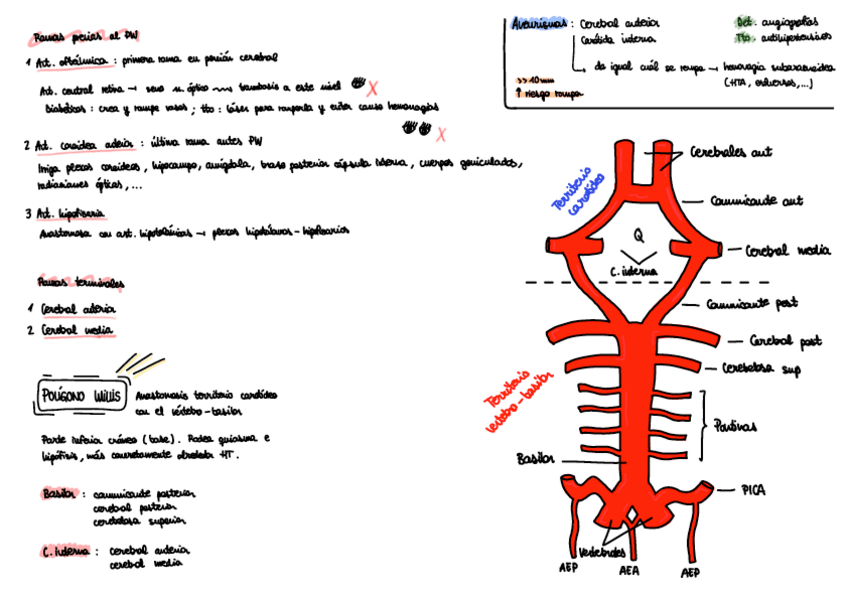 Ramas previas al PW
1 Art. oftálmica : primera rama en porción cerebral
Art. central retina → seno n. óptico ~~> trombosis a este nivel X
Diabéticos : crea y rompe vasos ; tto : láser para romperla y evitar cause hemorragias
X
2 Art. coroidea anterior : última rama antes PW
Irriga plexos coroideos, hipocampo, amígdala, brazo posterior cápsula interna, cuerpos geniculados,
radiaciones ópticas, ...
3 Art. hipofisaria
Anastomosa con art. hipotalámicas → plexos hipotálamos-hipofisarios
Ramas terminales
1 Cerebral anterior
2 Cerebral media
POLÍGONO WILLIS
Anastomosis territorio carotídeo
con el vértebro-basilar
Parte inferior cráneo (base). Rodea quiasma e
hipófisis, más concretamente alrededor HT.
Basilar : comunicante posterior
cerebral posterior
cerebelosa superior
C. Interna : cerebral anterior
cerebral media
Aneurismas : Cerebral anterior
Carótida interna
da igual cuál se rompa → hemorragia subaracnoidea
(HTA, esfuerzos, ...)
>> 10mm
↑ riesgo rompa
Det. angiografías
Tto. antihipertensivos
Territorio
carotídeo
Cerebrales ant
Comunicante ant
Q
Cerebral media
C. interna
Comunicante post
Cerebral post
Cerebelosa sup
Territorio
vértebro-basilar
Pontinas
Basilar
PICA
Vertebrales
AEP
AEA
AEP